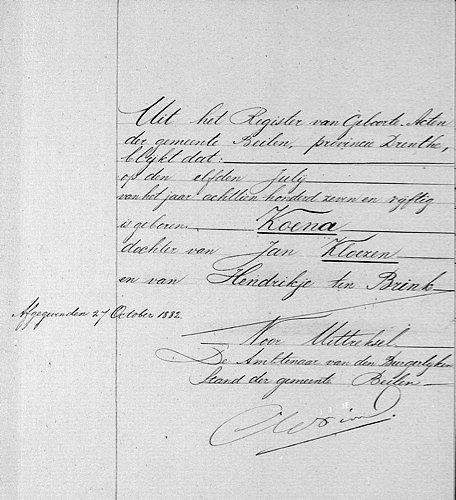 Uit het Register van Geboorte-Acten
der gemeente Beilen, provincie Drenthe,
blijkt dat:
op den elfden July
van het jaar achttien honderd zeven en vijftig
is geboren Koena
dochter van Jan Kloezen
en van Hendrikje ten Brink
Afgegeven den 27 October 1882.
Voor Uittreksel
De Ambtenaar van den Burgerlyken
Stand der gemeente Beilen